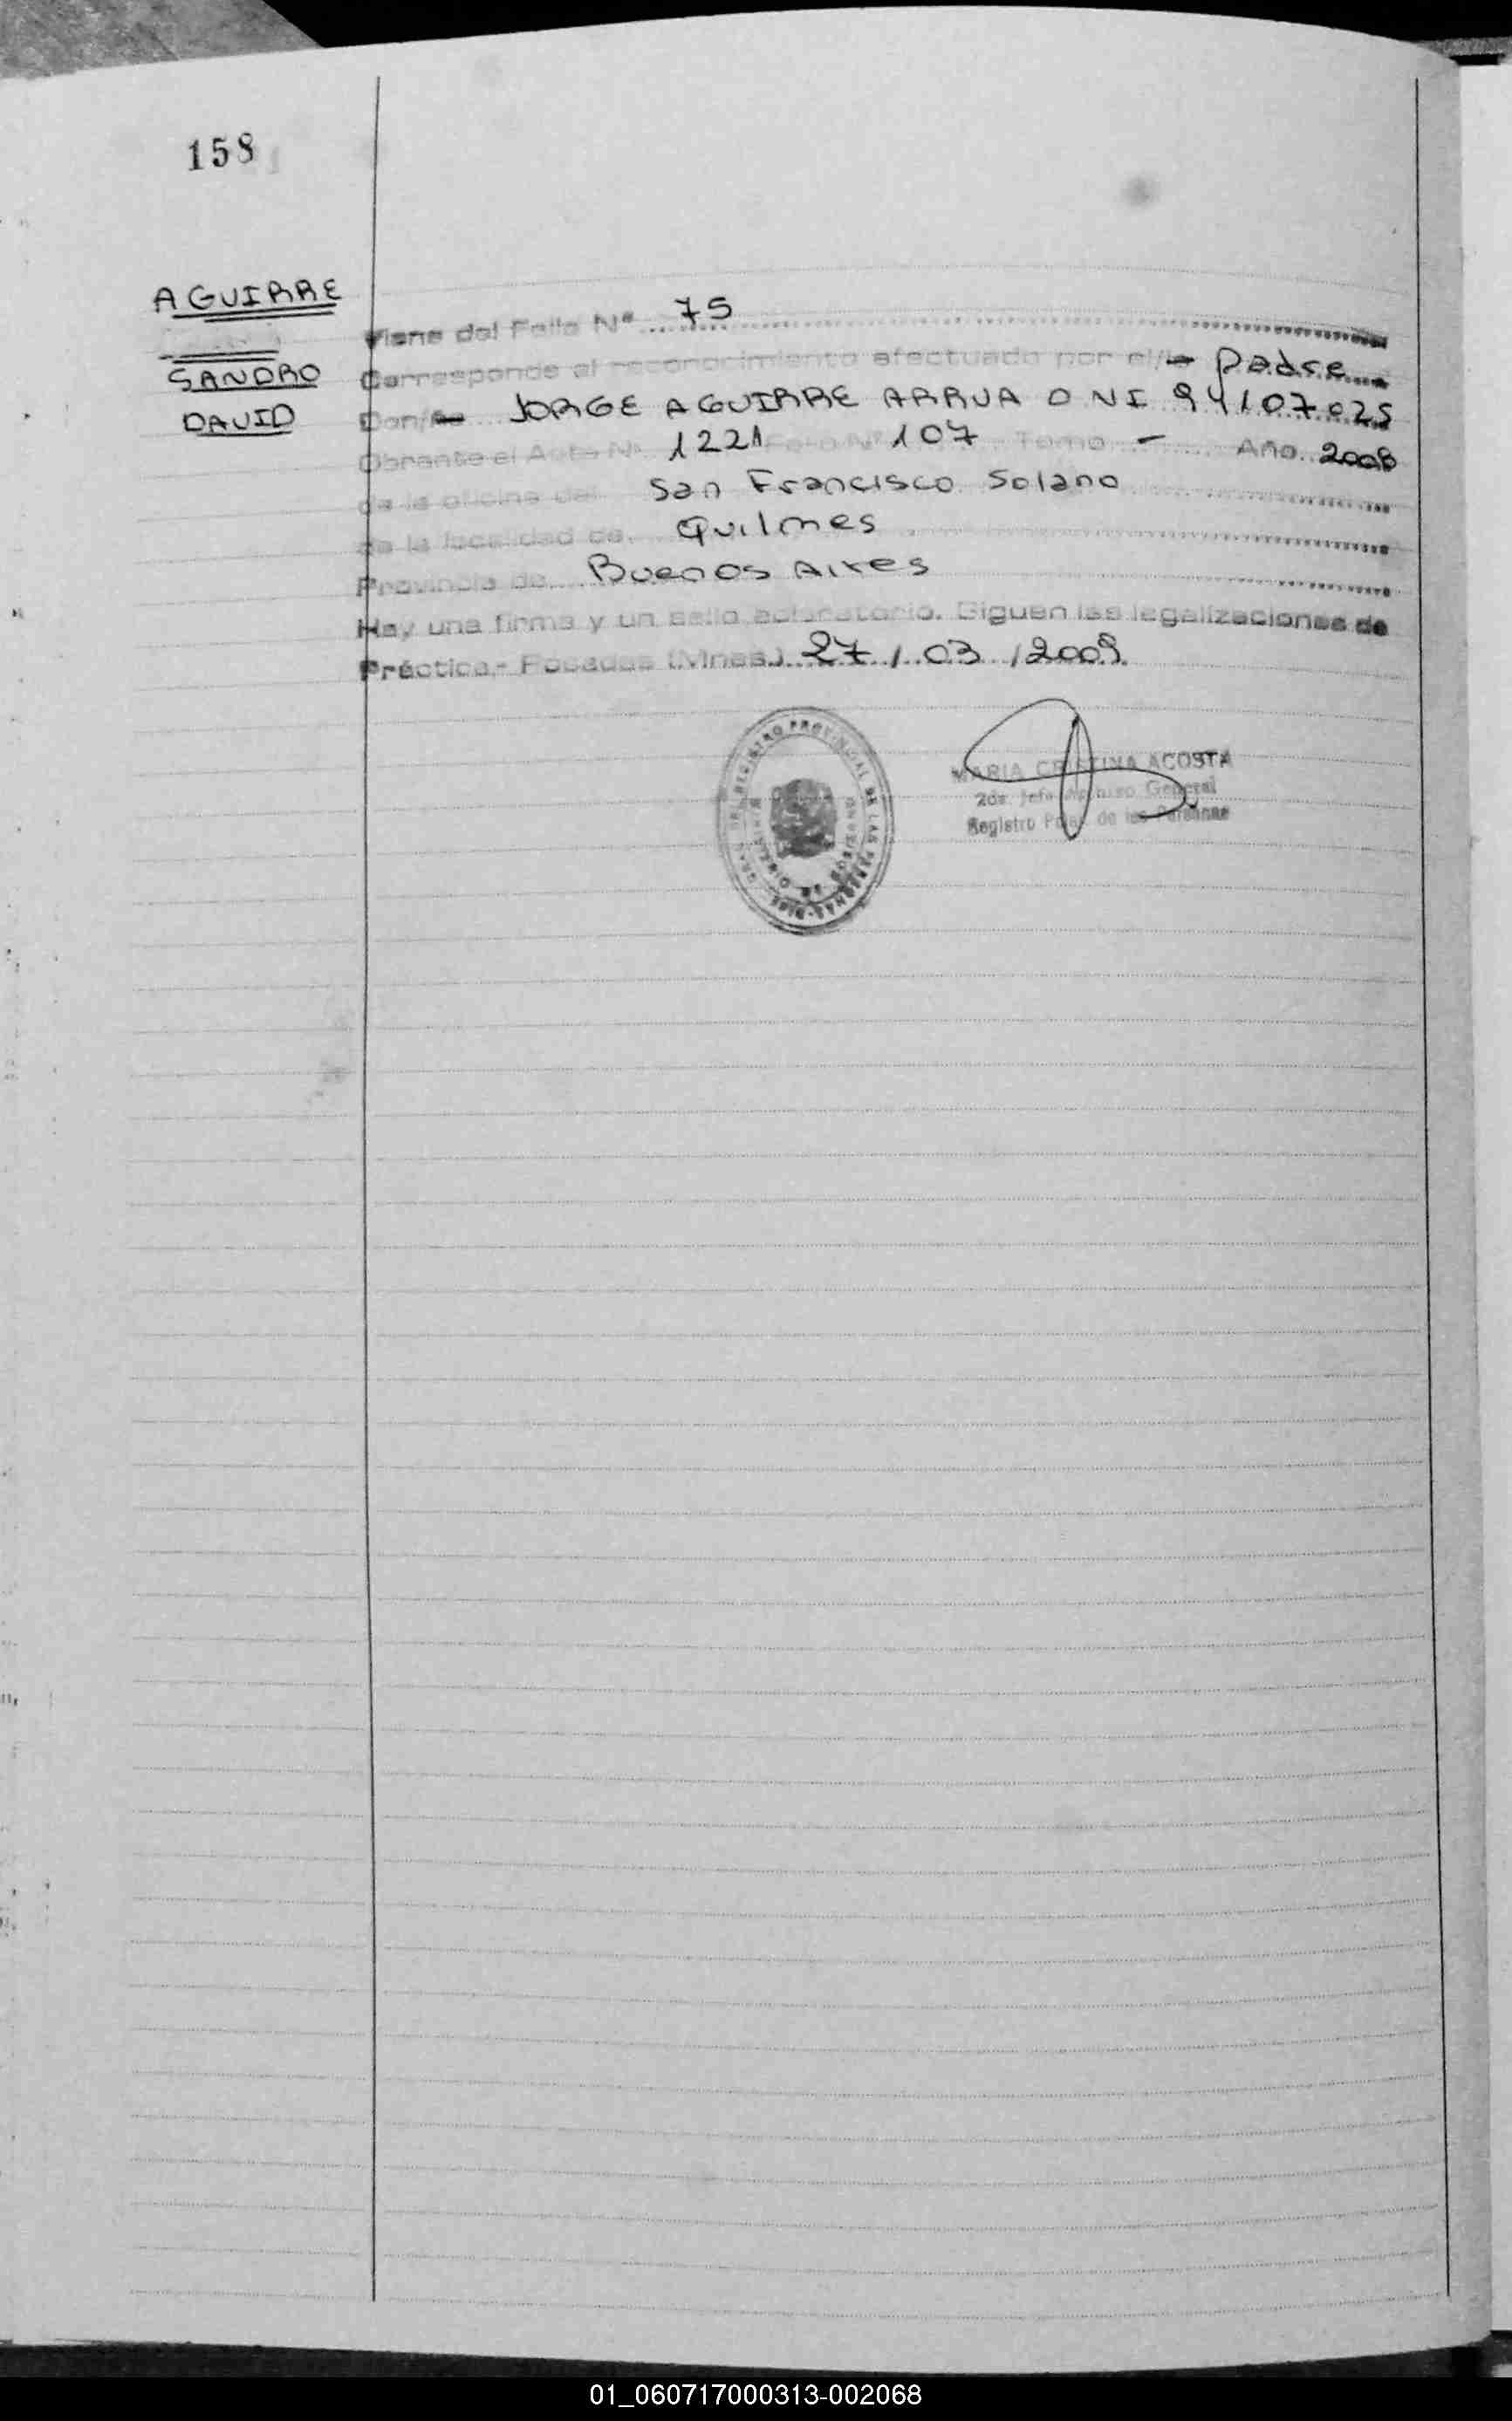 158
AGUIRRE
SANDRO
DAVID
Viene del Folio Nº 75
Corresponde al reconocimiento efectuado por el/la Padre
Don/ña JORGE AGUIRRE ARRUA DNI 94107025
Obrante el Acta Nº 1221 Folio Nº 107 Tomo - Año 2008
de la oficina del San Francisco Solano
de la localidad de Quilmes
Provincia de Buenos Aires
Hay una firma y un sello aclaratorio. Siguen las legalizaciones de
Práctica.- Posadas (Mnes.) 27 / 03 / 2009
MARIA CRISTINA ACOSTA
2da. Jefa Archivo General
Registro Pcial. de las Personas
REGISTRO PROVINCIAL DE LAS PERSONAS
01_060717000313-002068